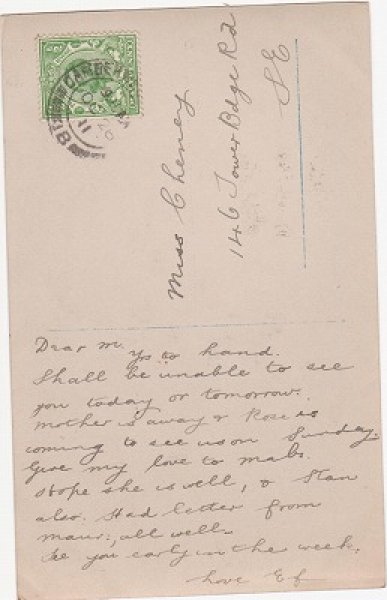 CAMBERW
11
Miss Cheney
146 Tower Bdge Rd
S E
Dear M.
Yrs to hand.
Shall be unable to see
you today or tomorrow.
Mother is away & Rose is
coming to see us on Sunday.
Give my love to Mabs.
Hope she is well, & Stan
also. Had letter from
Maur:, all well.
See you early in the week.
Love Ef